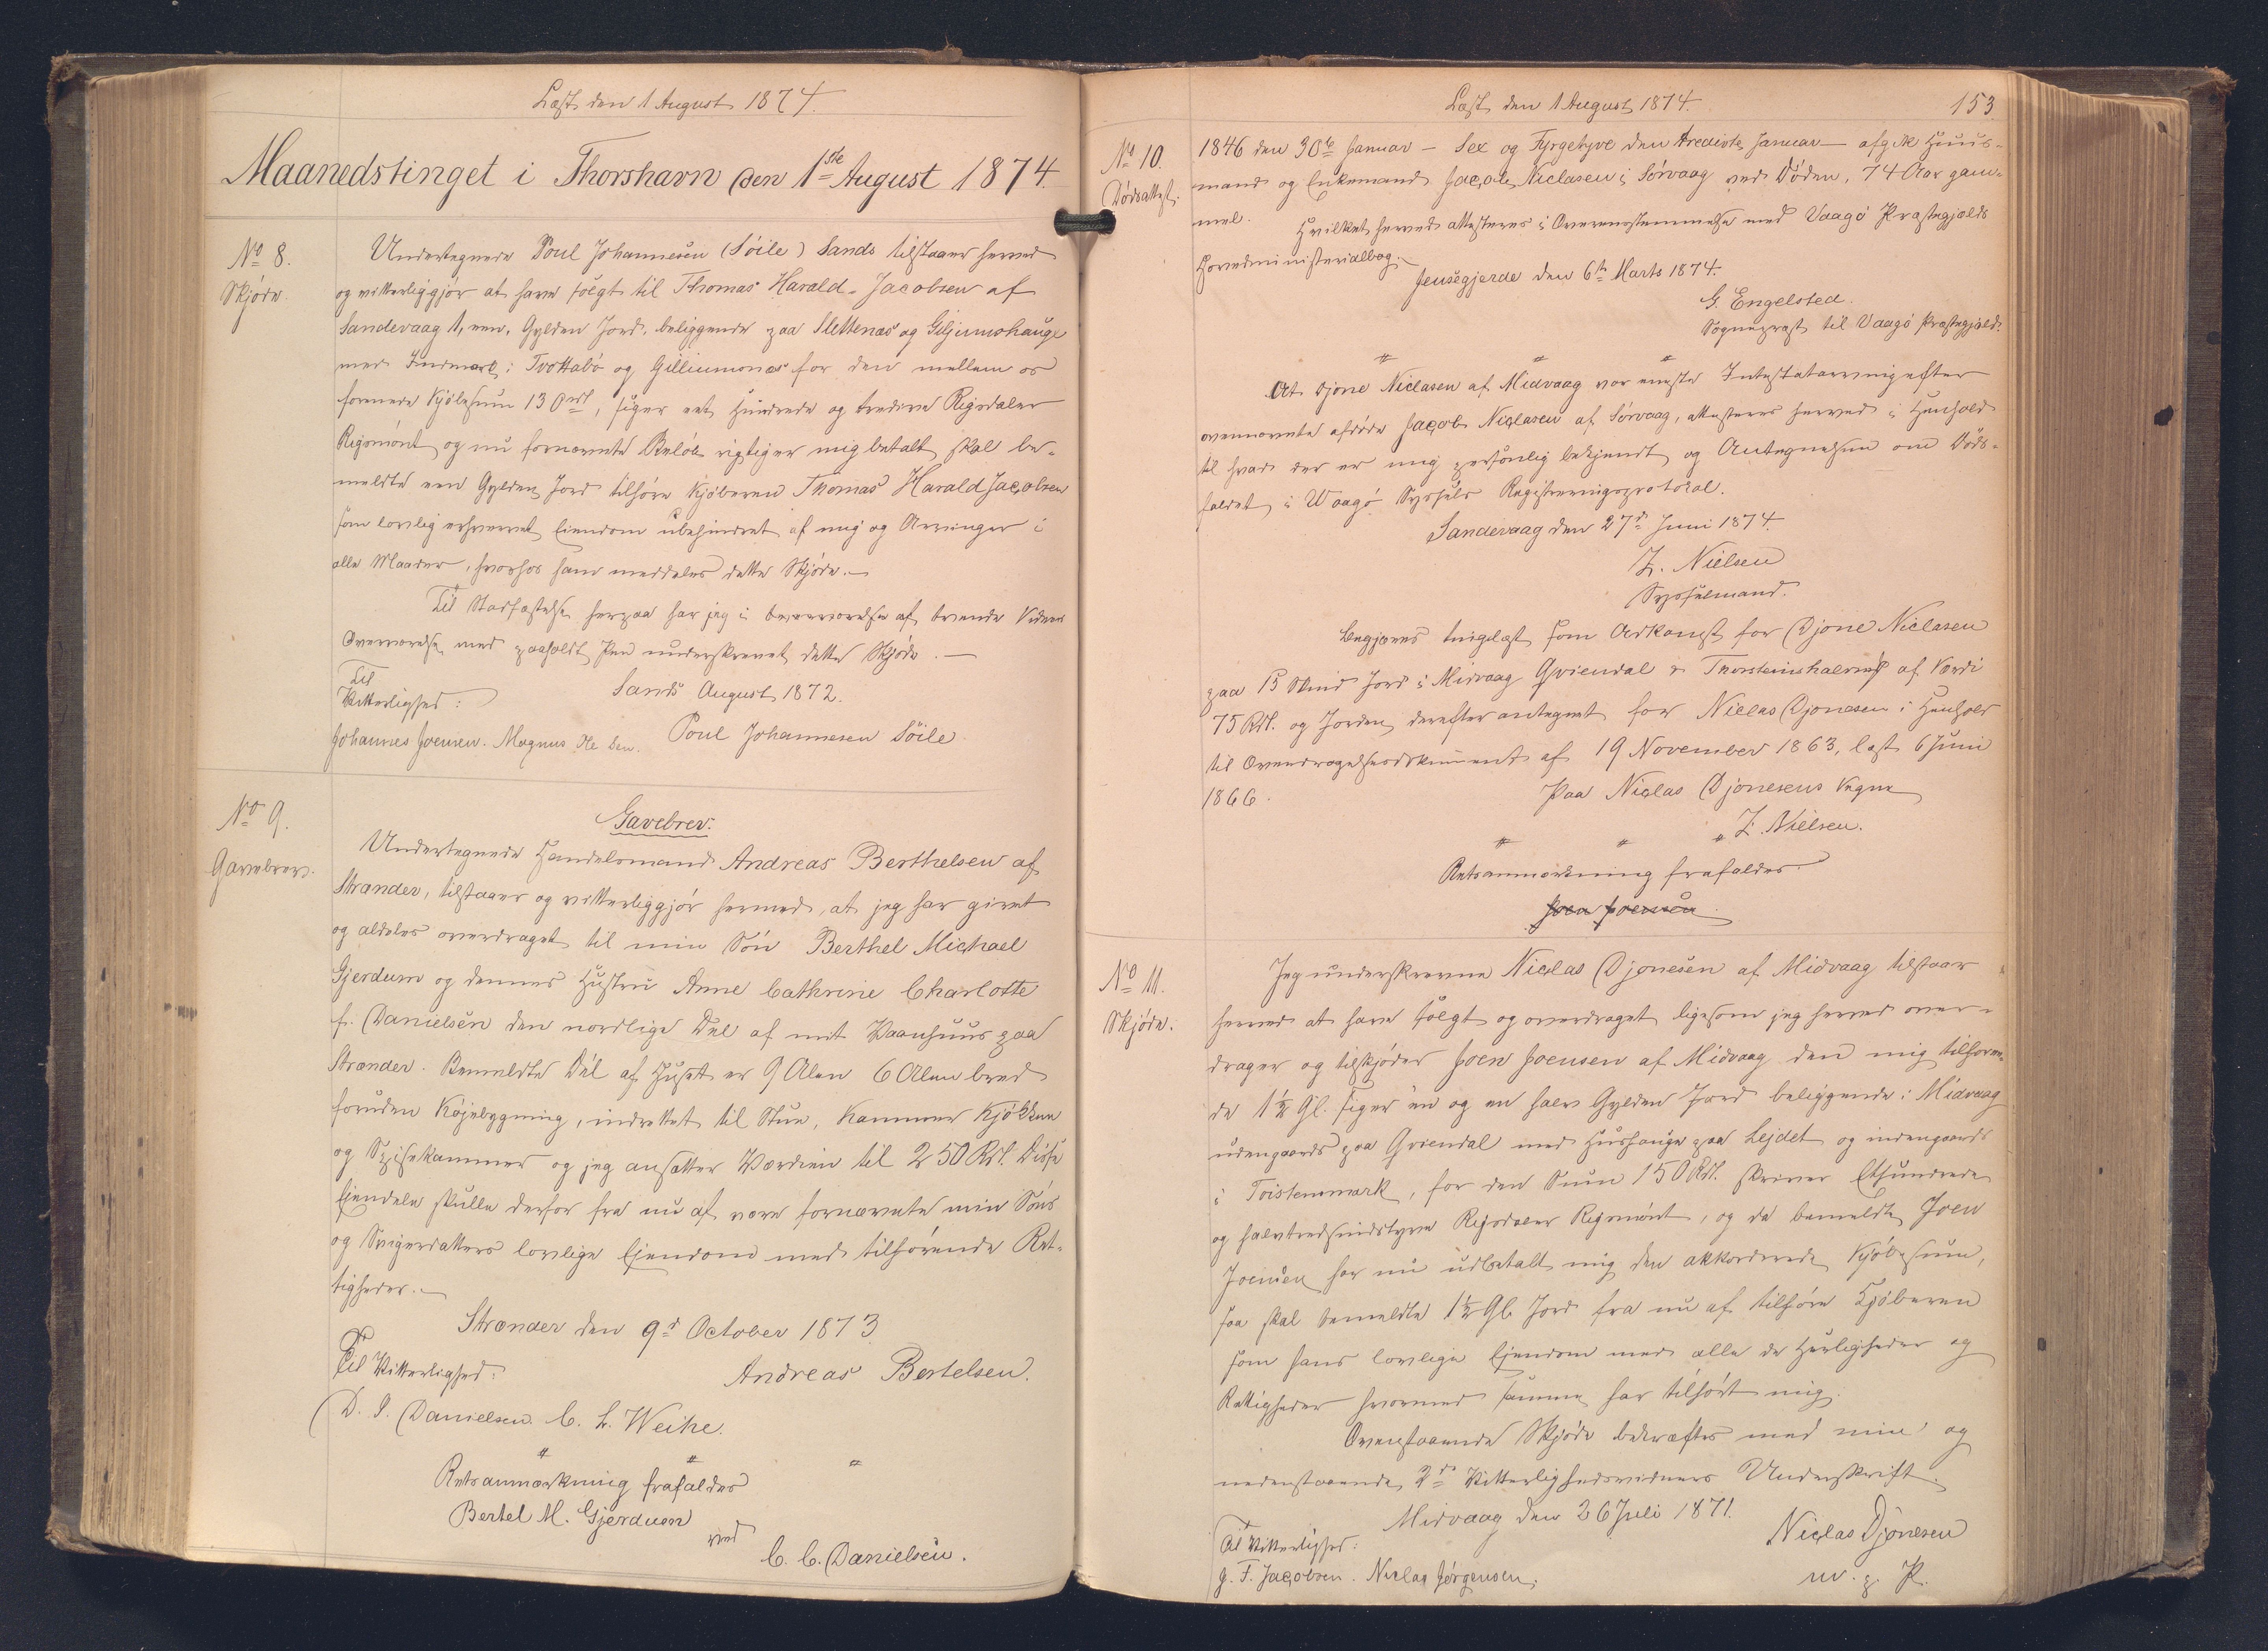 Læst den 1 August 1874.
Maanedstinget i Thorshavn den 1ste August 1874.
No 8.
Skjøde.
Undertegnede Poul Johannesen (Söile) Sands tilstaaer herved
og vitterliggjør at have solgt til Thomas Harald Jacobsen af
Sandevaag 1, een, Gylden Jord, beliggende paa Slettenæs og Giljumshauge
med Indmark i Tvottabø og Gilliumones for den mellem os
forenede Kjøbesum 130 rdl, siger eet Hundrede og tredive Rigsdaler
Rigsmønt og nu fornævnte Beløb rigtig er mig betalt skal be-
meldte een Gylden Jord tilhøre Kjøberen Thomas Harald Jacobsen
som lovlig erhvervet Eiendom ubehindret af mig og Arvinger i
alle Maader, hvorfor ham meddeles dette Skjøde.
Til Stadfæstelse herpaa har jeg i Overværelse af tvende Vidners
Overværelse med paaholdt Pen underskrevet dette Skjøde.
Sands August 1872.
Til
Vitterlighed:
Poul Johannesen Söile
Johannes Joensen. Magnus Ole Sen.
No 9.
Gavebrev.
Gavebrev.
Undertegnede Handelsmand Andreas Berthelsen af
Strænder, tilstaaer og vitterliggjør hermed, at jeg har givet
og aldeles overdraget til min Søn Berthel Michael
Gjerdum og dennes Hustru Anne Cathrine Charlotte
f. Danielsen den nordlige Del af mit Vaanhuus paa
Strænder. Bemeldte Del af Huset er 9 Alen 6 Alen bred
foruden Køjebygning, indrettet til Stue, Kammer Kjøkken
og Spisekammer og jeg ansætter Værdien til 250 Rdl. Disse
Ejendele skulle derfor fra nu af være fornævnte min Søns
og Svigerdatters lovlige Ejendom med tilhørende Ret-
tigheder.
Strænder den 9d October 1873
Til Vitterlighed:
Andreas Bertelsen.
D. J. Danielsen. C. L. Weihe.
Retsanmærkning frafaldes
Bertel M. Gjerdum
ved
C. C. Danielsen.
Læst den 1 August 1874.
153
No 10.
Dødsattest.
1846 den 30te Januar - Sex og Fyrgetyve den tredivte Januar - afgik Huus-
mand og Enkemand Jacob Niclasen i Sørvaag ved Døden, 74 Aar gam-
mel.
Hvilket herved attesteres i Overensstemmelse med Vaagø Præstegjelds
Hovedministerialbog.
Jensegjerde den 6te Marts 1874.
G. Engelsted.
Sognepræst til Vaagø Præstegjeld.
At Djone Niclasen af Midvaag var eneste Intestatarving efter
ovennævnte afdøde Jacob Niclasen af Sørvaag, attesteres herved i Henhold
til hvad der er mig personlig bekjendt og Antegnelsen om Døds-
faldet i Waagø Syssels Registreringsprotocol.
Sandevaag den 27d Juni 1874.
Z. Nielsen
Sysselmand.
Begjæres tinglæst som Adkomst for Djone Niclasen
paa 15 Skind Jord i Midvaag Gviendal & Thorsteinshalvmk af Værdi
75 Rdl. og Jorden derefter antegnet for Niclas Djonesen i Henhold
til Overdragelsesdokument af 19 November 1863, læst 6 Juni
1866.
Paa Niclas Djonesens Vegne
Z. Nielsen.
Retsanmærkning frafaldes
Joen Joensen
No 11.
Skjøde.
Jeg underskrevne Niclas Djonesen af Midvaag tilstaar
herved at have solgt og overdraget ligesom jeg herved over-
drager og tilskjøder Joen Joensen af Midvaag den mig tilhøren-
de 1½ Gl. siger en og en halv Gylden Jord beliggende i Midvaag
udengaards paa Gviendal med Hushauge paa Lejdet og indengaards
i Toistenmark, for den Sum 150 Rdl. skriver Ethundrede
og halvtredsindstyve Rigsdaler Rigsmønt, og da bemeldte Joen
Joensen har nu udbetalt mig den akkorderede Kjøbesum,
saa skal bemeldte 1½ Gl. Jord fra nu af tilhøre Kjøberen
som hans lovlige Ejendom med alle de Herligheder og
Rettigheder hvormed samme har tilhørt mig.
Ovenstaaende Skjøde bekræftes med min og
nedenstaaende 2de Vitterlighedsvidners Underskrift.
Midvaag den 26 Juli 1871.
Til Vitterlighed:
Niclas Djonesen
J. F. Jacobsen. Niclas Jørgensen.
m. p. P.